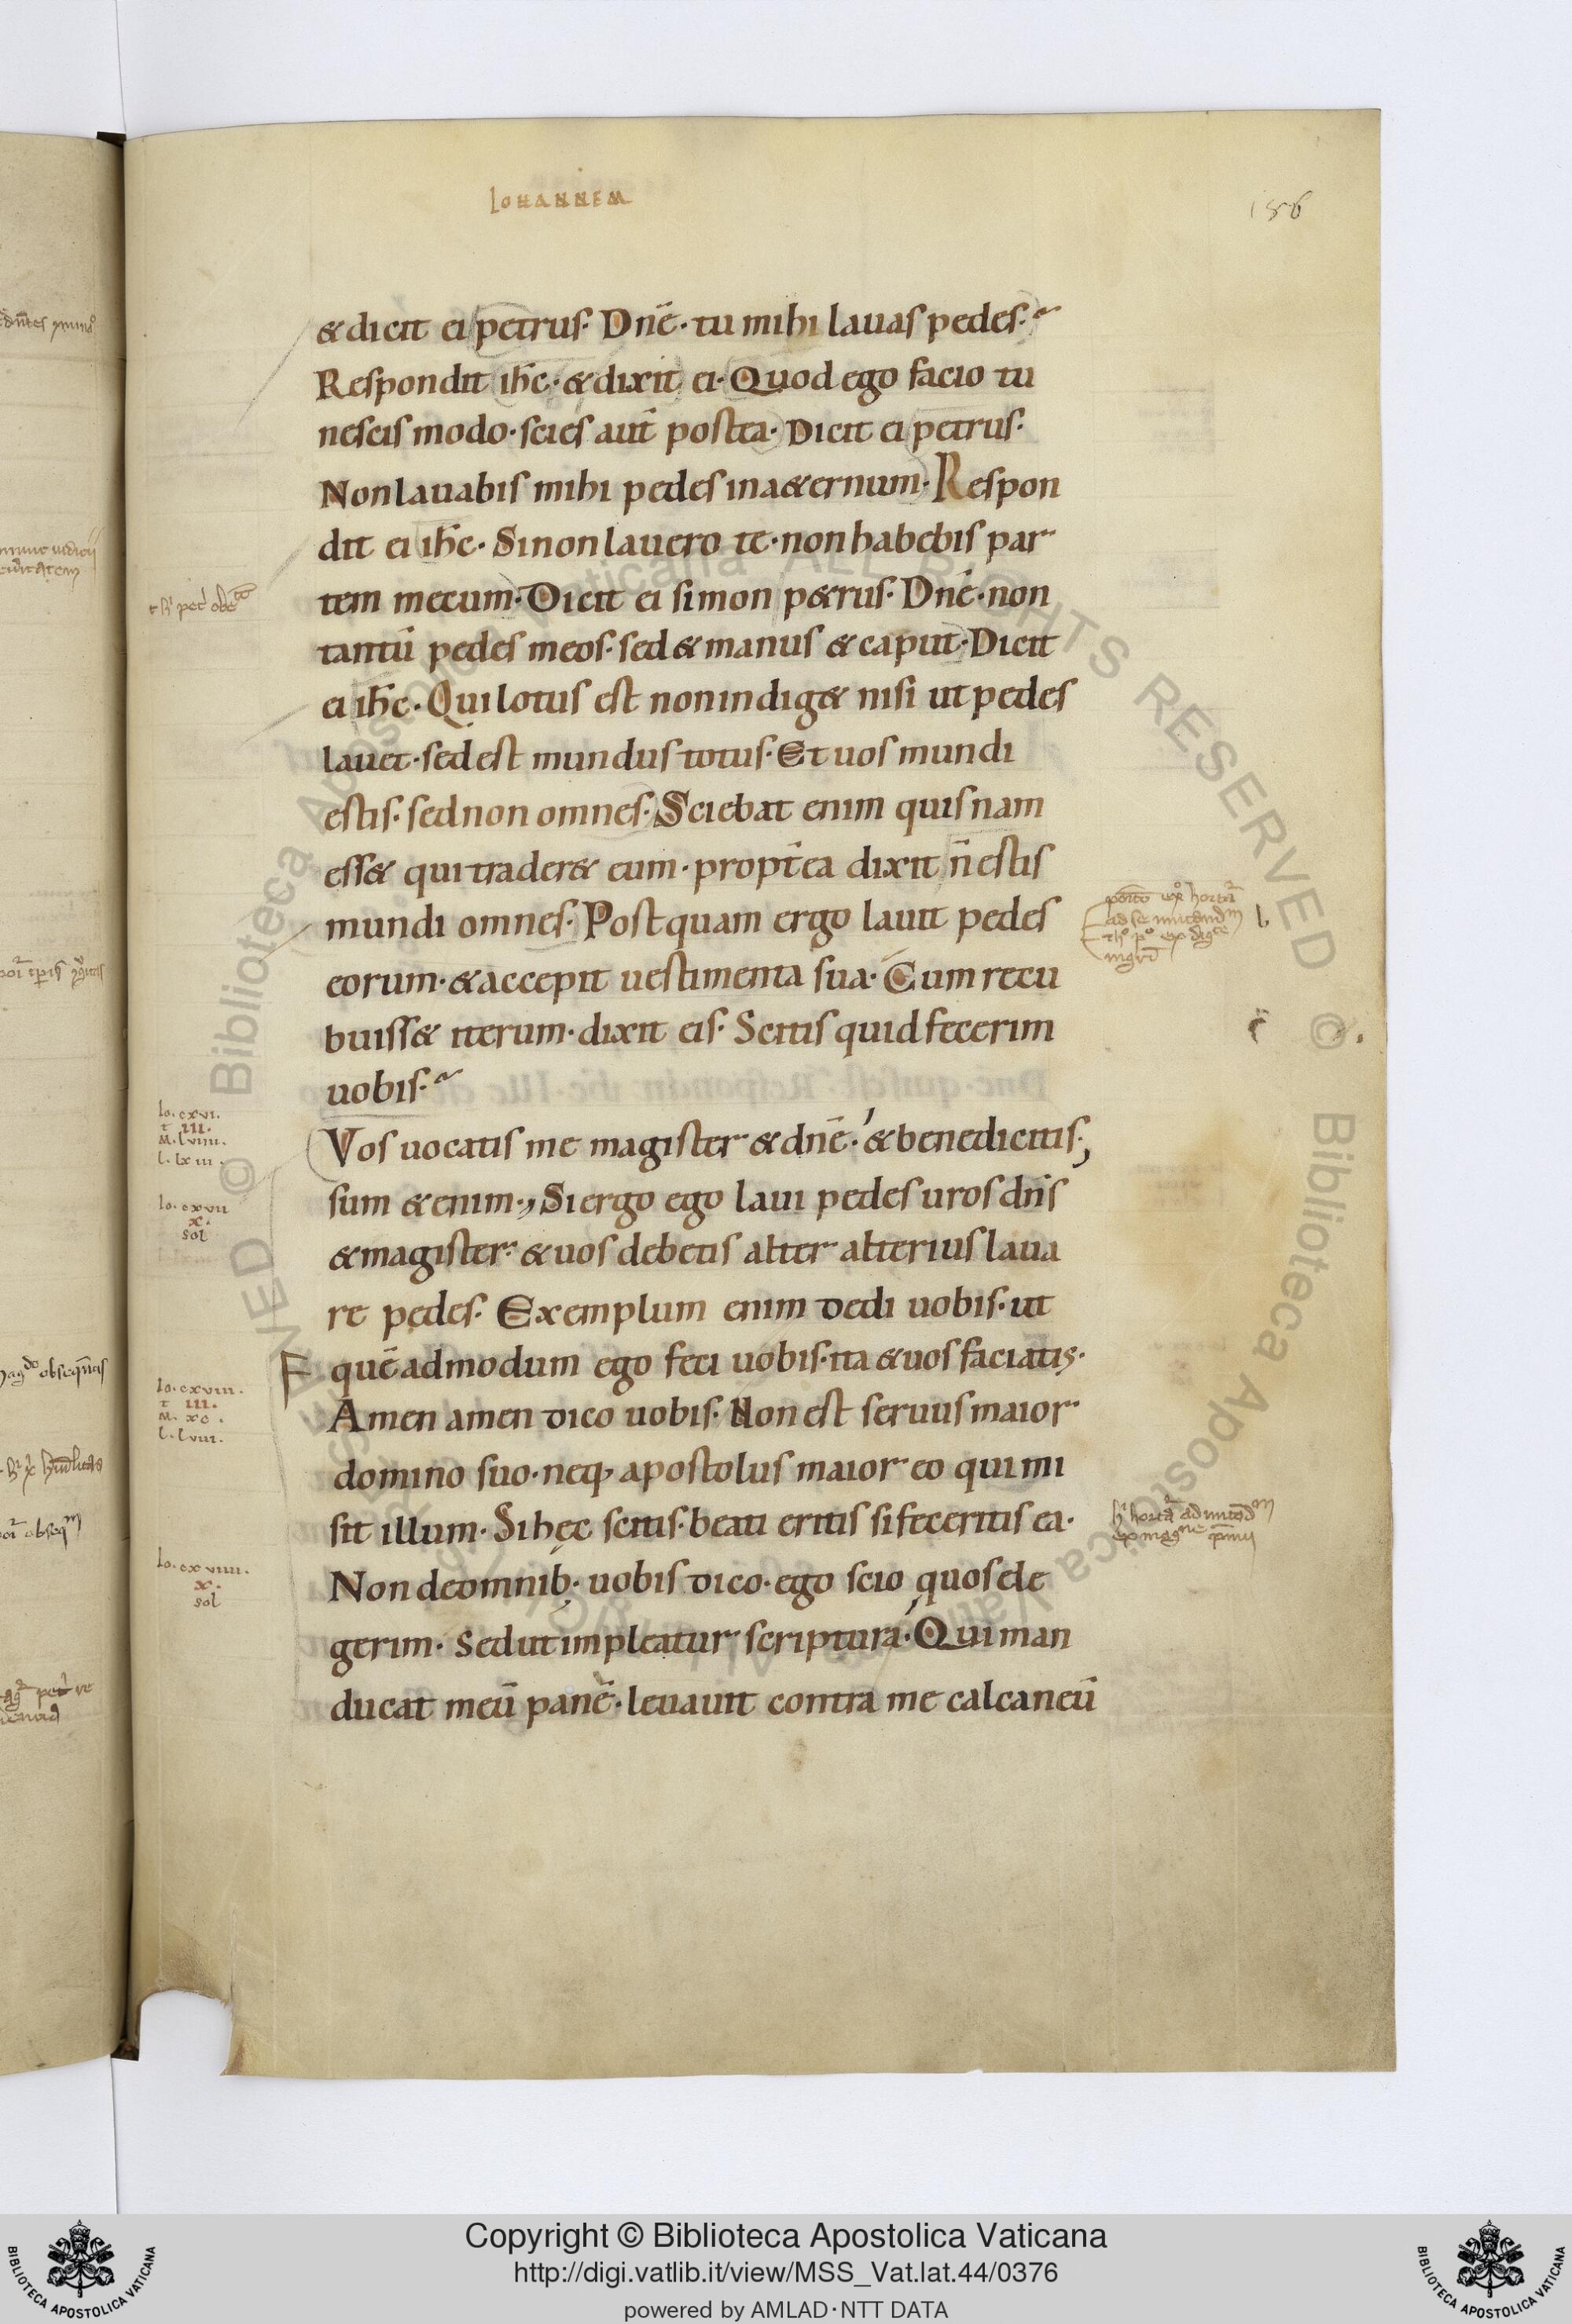 IOHANNEM
186
& dicit ei petrus· Dnē· tu mihi lauas pedes·
Respondit ihc̄· & dixit ei· Quod ego facio tu
nescis modo· scies aut̄ postea· Dicit ei petrus·
Non lauabis mihi pedes in a&ernum· Respon
dit ei ihc̄· Si non lauero te· non habebis par
tem mecum· Dicit ei simon p&rus· Dnē· non
tantū pedes meos· sed & manus & caput· Dicit
ei ihc̄· Qui lotus est non indig& nisi ut pedes
lauet· sed est mundus totus· Et uos mundi
estis· sed non omnes· Sciebat enim quisnam
ess& qui trader& eum· propt̄ea dixit n̄ estis
mundi omnes· Postquam ergo lauit pedes
eorum· & accepit uestimenta sua· Cum recu
buiss& iterum· dixit eis· Scitis quid fecerim
uobis·
Io. cxvi.
t III.
M. lviiii.
l. lxiii.
Vos uocatis me magister & dnē· & benedicitis·
Io. cxvii
x.
sol
sum & enim·, Si ergo ego laui pedes uros dn̄s
& magister· & uos debetis alter alterius laua
re pedes· Exemplum enim dedi uobis· ut
F quē admodum ego feci uobis· ita & uos faciatis·
Io. cxviii.
t III.
M. xc.
l. lviii.
Amen amen dico uobis· Non est seruus maior
domino suo· neq, apostolus maior eo qui mi
sit illum· Si hęc scitis· beati eritis si feceritis ea·
Io. cxviiii.
x.
sol
Non de omnib;· uobis dico· ego scio quos ele
gerim· Sed ut impleatur scriptura· Qui man
ducat meū panē· leuauit contra me calcaneū
Copyright © Biblioteca Apostolica Vaticana
http://digi.vatlib.it/view/MSS_Vat.lat.44/0376
powered by AMLAD·NTT DATA
BIBLIOTECA APOSTOLICA VATICANA
BIBLIOTECA APOSTOLICA VATICANA